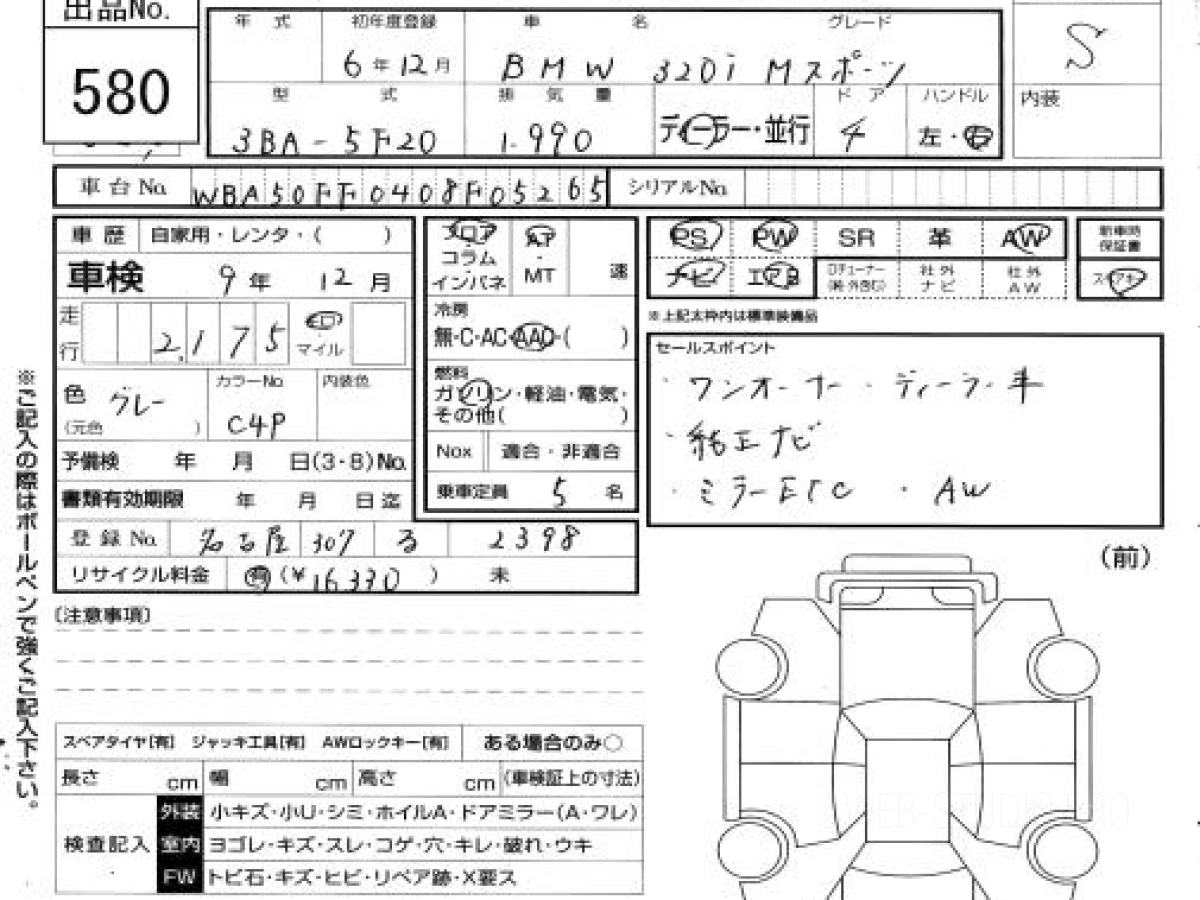 出品No.
580
年式 初年度登録 車名 グレード
6年12月 BMW 320i Mスポーツ
S
型式 排気量 ドア ハンドル 内装
3BA-5F20 1.990 ディーラー・並行 4 左・右
車台No. WBA50FF0408F05265 シリアルNo.
車歴 自家用・レンタ・( )
車検 9年 12月
走行 2,175 キロ マイル
色 グレー カラーNo C4P 内装色
(元色 )
予備検 年 月 日(3・8)No.
書類有効期限 年 月 日迄
登録No. 名古屋 307 る 2398
リサイクル料金 有(¥16,330) 未
フロア AT
コラム ・
インパネ MT 速
冷房
無・C・AC・AAC・( )
燃料
ガソリン・軽油・電気・
その他( )
Nox 適合・非適合
乗車定員 5 名
PS PW SR 革 AW 新車時保証書
ナビ エアB Dチューナー 社外ナビ 社外AW スペアキー
※上記太枠内は標準装備品
セールスポイント
・ワンオーナー・ディーラー車
・純正ナビ
・ミラーETC ・AW
(前)
〔注意事項〕
スペアタイヤ[有] ジャッキ工具[有] AWロックキー[有] ある場合のみ○
長さ cm 幅 cm 高さ cm (車検証上の寸法)
検査記入
外装 小キズ・小U・シミ・ホイルA・ドアミラー(A・ワレ)
室内 ヨゴレ・キズ・スレ・コゲ・穴・キレ・破れ・ウキ
FW トビ石・キズ・ヒビ・リペア跡・X要ス
※ご記入の際はボールペンで強くご記入下さい。